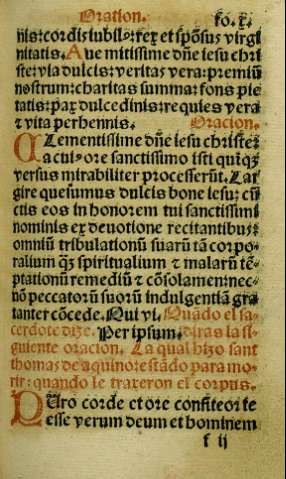 Oration. fo. x.
nis: cordis iubilꝰ: rex et spõsus virgi
nitatis. Aue mitissime dñe iesu chri
ste: via dulcis: veritas vera: premiũ
nostrum: charitas summa: fons pie
tatis: pax dulcedinis: requies vera
⁊ vita perhennis. Oracion.
Clementissime dñe iesu christe:
a cuiꝰ ore sanctissimo isti quiqȝ
versus mirabiliter processerũt. Lar
gire quesumus dulcis bone iesu: cũ
ctis eos in honorem tui sanctissimi
nominis ex deuotione recitantibus:
omniũ tribulationũ suarũ tã corpo
ralium qȝ spiritualium ⁊ malarũ tẽ
ptationũ remediũ ⁊ cõsolamen: nec
nõ peccatorũ suorũ indulgentiã gra
tanter cõcede. Qui vi. Quando el sa
cerdote dize. Per ipsum. diras la si
guiente oracion. La qual hizo sant
thomas de aquino estãdo para mo
rir: quando le traxeron el corpus.
Puro corde et ore confiteor te
esse verum deum et hominem
f ij